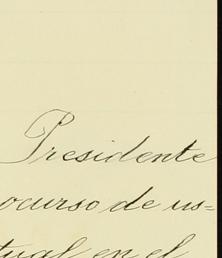 Presidente
ocurso de us=
tual en el